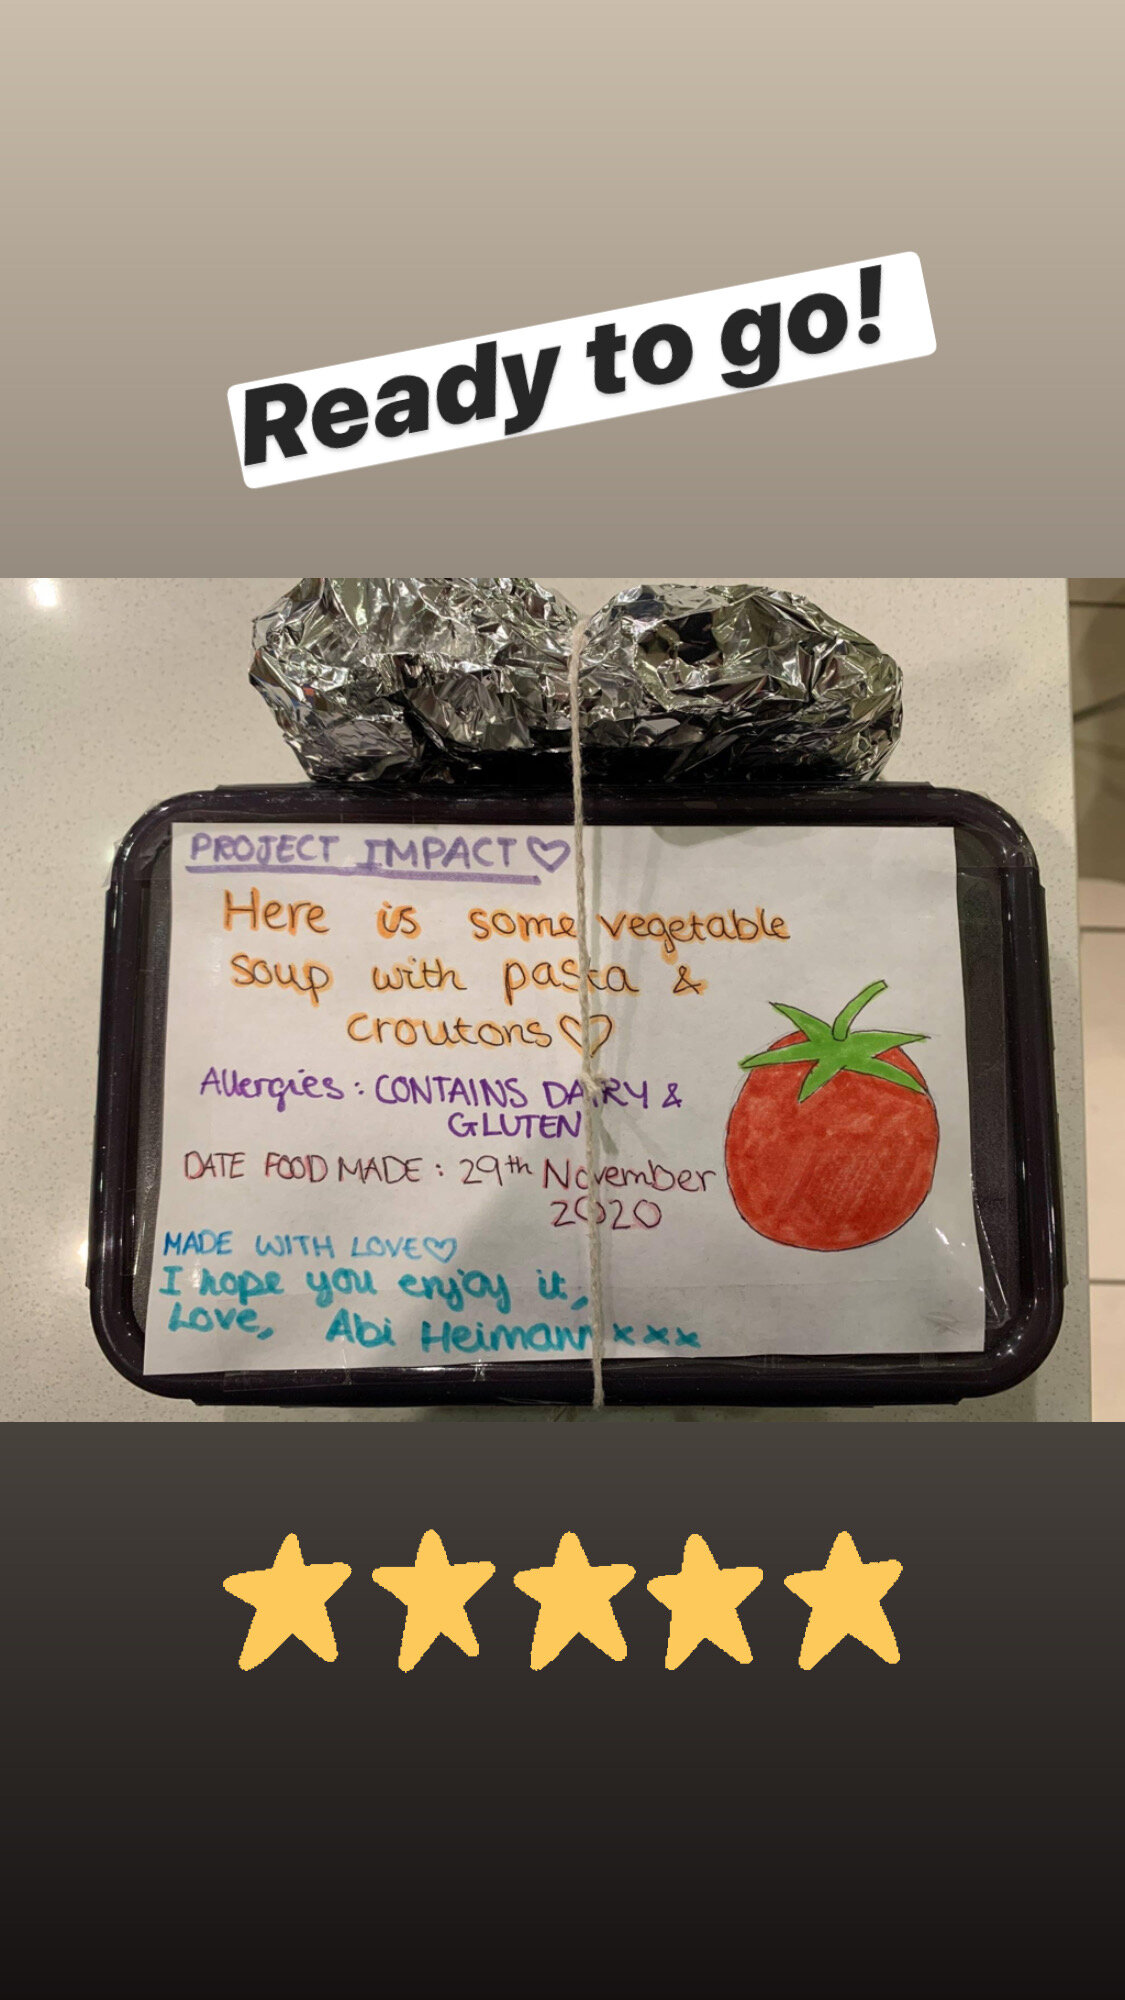 Ready to go!
PROJECT IMPACT♡
Here is some vegetable
soup with pasta &
croutons♡
Allergies: CONTAINS DAIRY &
GLUTEN
DATE FOOD MADE: 29th November
2020
MADE WITH LOVE♡
I hope you enjoy it,
Love, Abi Heimann xxx